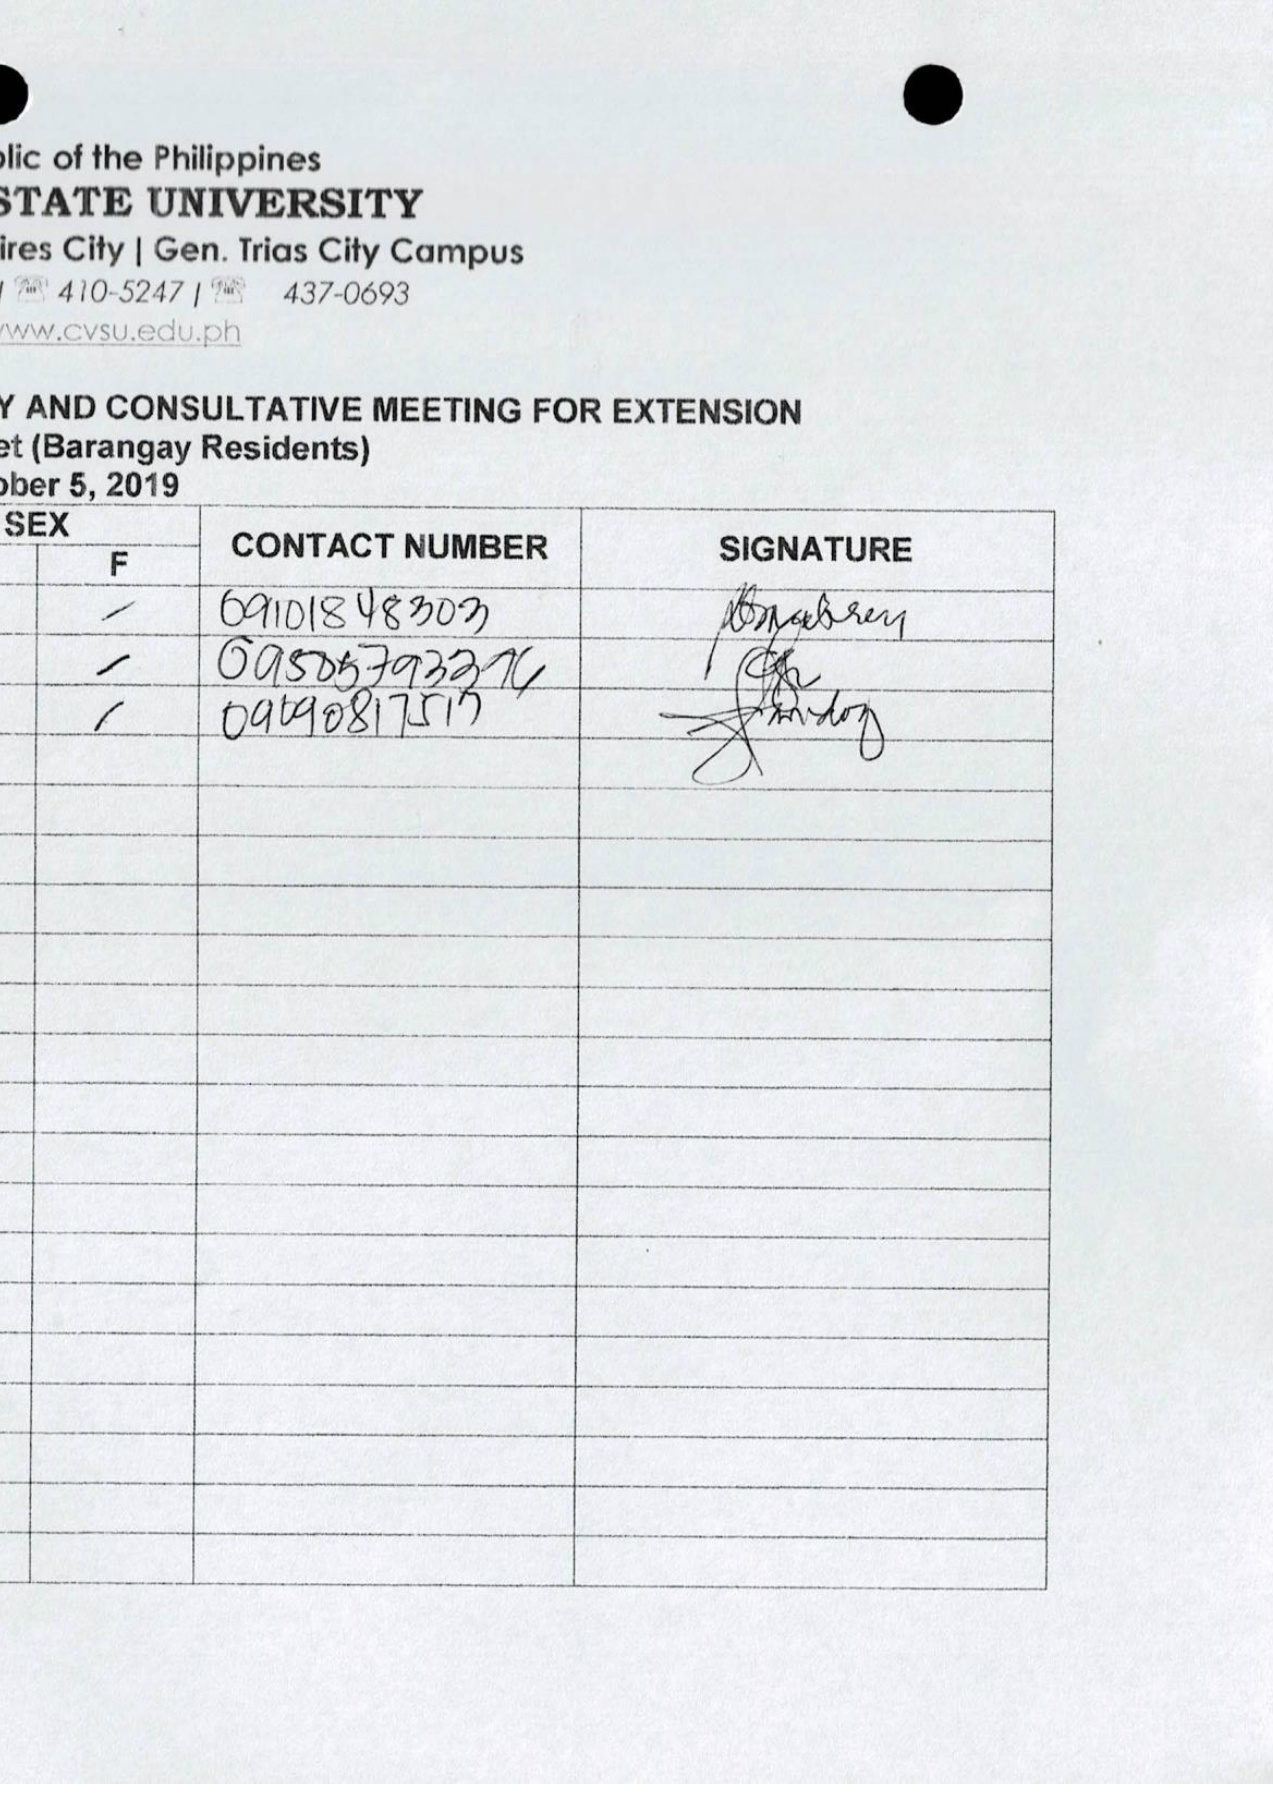 blic of the Philippines
STATE UNIVERSITY
ires City | Gen. Trias City Campus
| ☏ 410-5247 | ☏ 437-0693
www.cvsu.edu.ph
Y AND CONSULTATIVE MEETING FOR EXTENSION
et (Barangay Residents)
ober 5, 2019
SEX
F
CONTACT NUMBER
SIGNATURE
09101848303